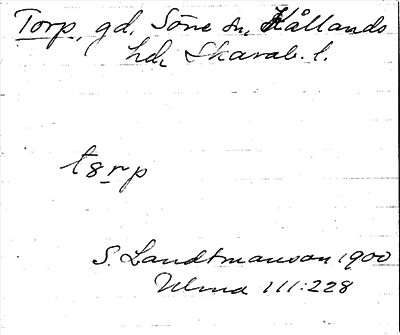 Torp, gd, Söne sn, Kållands
hd, Skarab. l.
t8rp
S. Landtmanson 1900
Ulma 111:228